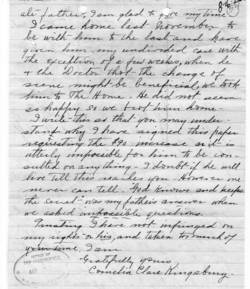 ate father, I am glad to give my time.
I came home last November to
be with him to the last and have
given him my undivided care with
the exception of a few weeks, when he
& the Doctor that the change of
scene might be beneficial, we took
him to the Home. He did not seem
so happy so we brot him home.
I write this so that you may under-
stand why I have signed this paper
requesting the increase sir it is
utterly impossible for him to be con-
sulted on anything. I doubt if he will
live till this reaches you. However one
never can tell. "God knows and keeps
the secret" was my father's answer when
we asked impossible questions.
Trusting I have not infringed on
my rights or his, and taken too much of
your time, I am
Gratefully yours
Cornelia Clare Kingsbury